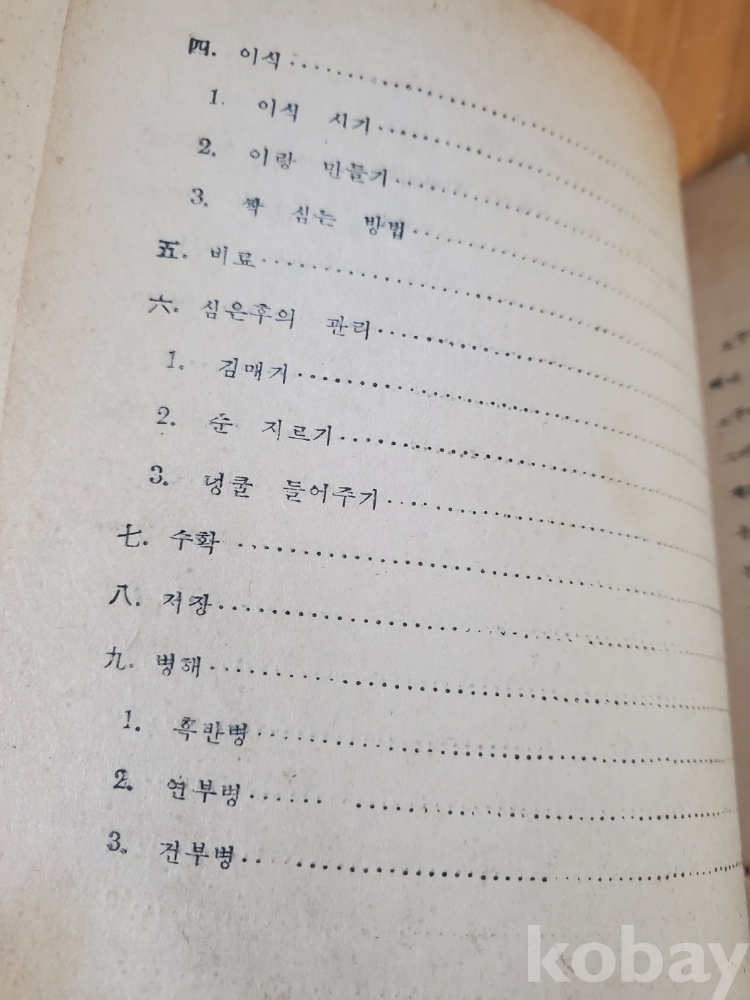 四. 이식
1. 이식 시기
2. 이랑 만들기
3. 싹 심는 방법
五. 비료
六. 심은후의 관리
1. 김매기
2. 순 지르기
3. 넝쿨 들어주기
七. 수확
八. 저장
九. 병해
1. 흑반병
2. 연부병
3. 건부병
kobay